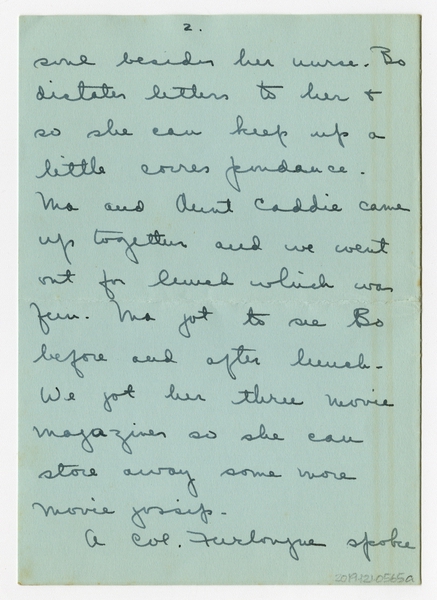 2.
sone besides her nurse. Bo
dictates letters to her &
so she can keep up a
little correspondance.
Ma and Aunt Caddie came
up together and we went
out for lunch which was
fun. Ma got to see Bo
before and after lunch.
We got her three movie
magazines so she can
store away some more
movie gossip.
A Col. Furlongne spoke
2019.121.0565a